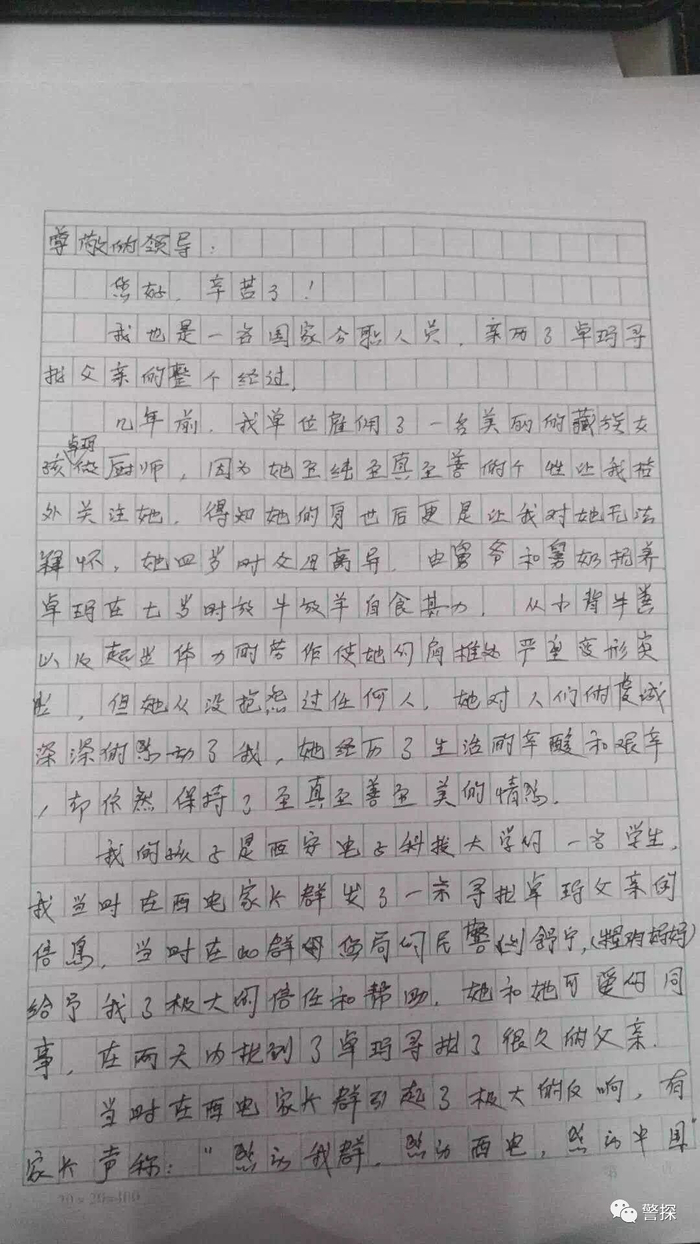 尊敬的领导：
您好，辛苦了！
我也是一名国家公职人员，亲历了卓玛寻
找父亲的整个经过，
几年前，我单位雇佣了一名美丽的藏族女
孩卓玛做厨师，因为她至纯至真至善的个性让我格
外关注她，得知她的身世后更是让我对她无法
释怀，她四岁时父母离异，由舅爷和舅奶抚养
卓玛在七岁时放牛放羊自食其力，从小背牛粪
以及超出体力的劳作使她的肩椎处严重变形突
出，但她从没抱怨过任何人，她对人们的虔诚
深深的感动了我，她经历了生活的辛酸和艰辛
，却依然保持了至真至善至美的情感。
我的孩子是西安电子科技大学的一名学生，
我当时在西电家长群发了一条寻找卓玛父亲的
信息，当时在此群的民警舒宁，
给予我了极大的信任和帮助，她和她可爱的同
事，在两天内找到了卓玛寻找了很久的父亲．
当时在西电家长群引起了极大的反响，有
家长声称：“感动我群，感动西电，感动中国”
20×20=400
警探